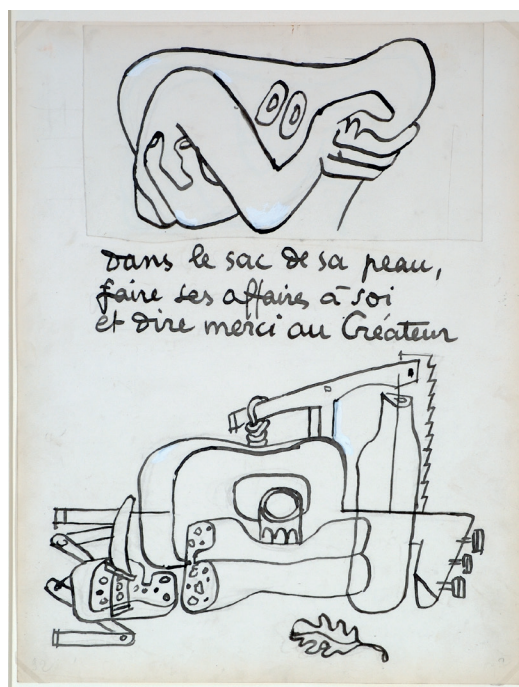 dans le sac de sa peau,
faire ses affaires à soi
et dire merci au Créateur